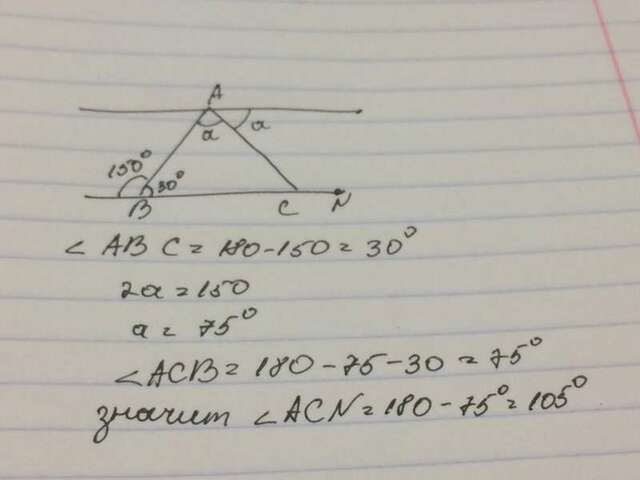 A
a a
150° 30°
B C N
∠ABC = 180-150 = 30°
2a = 150
a = 75°
∠ACB = 180 - 75 - 30 = 75°
значит ∠ACN = 180 - 75° = 105°